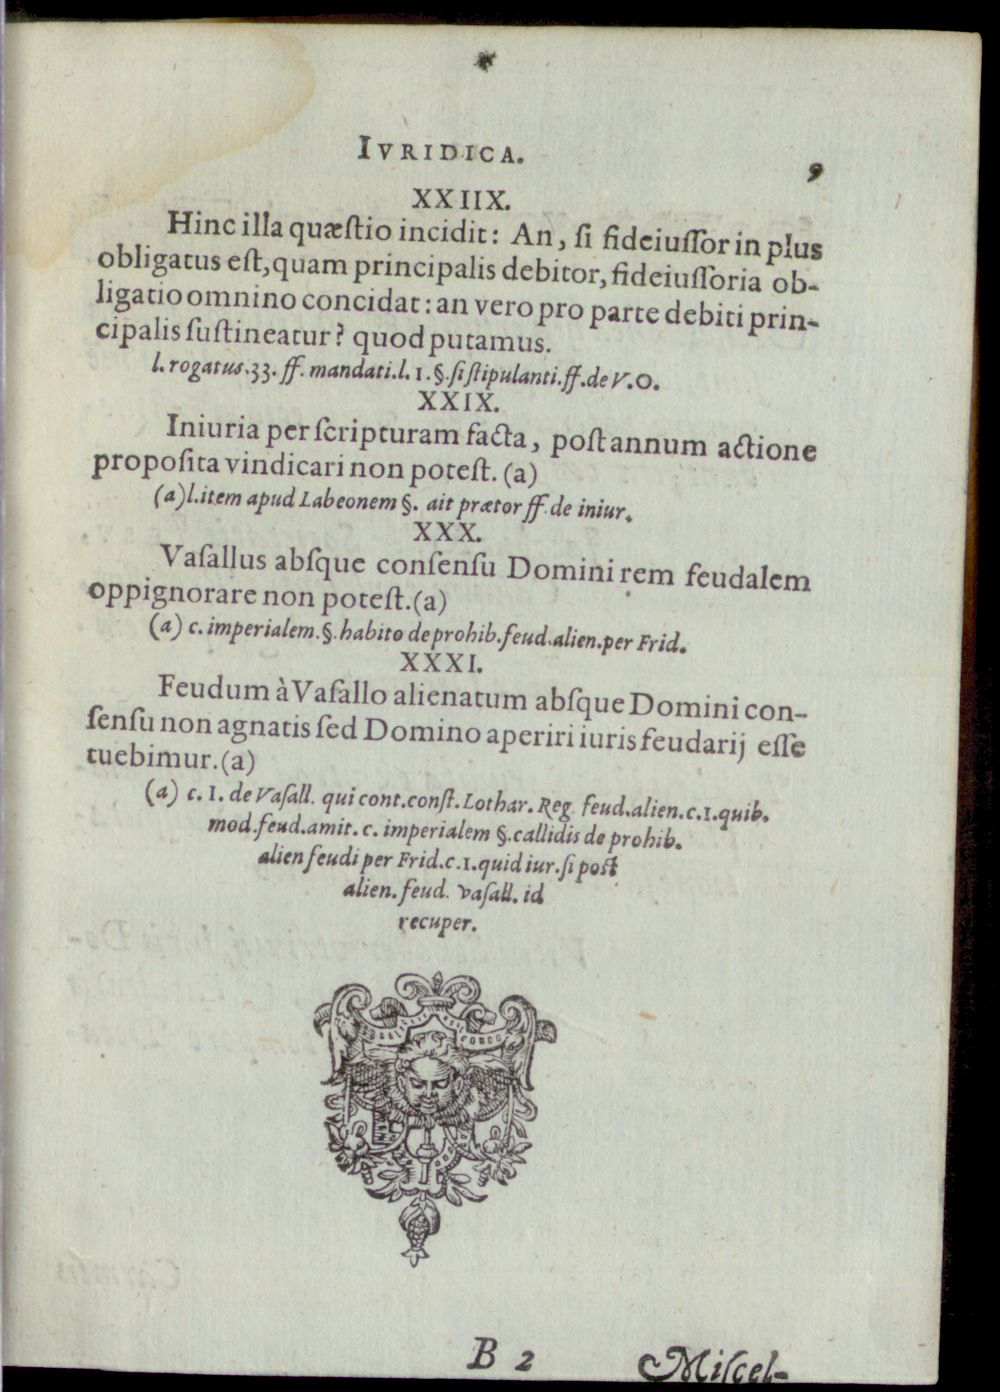 IVRIDICA.
9
XXIIX.
Hinc illa quæſtio incidit: An, ſi fideiuſſor in plus
obligatus eſt, quam principalis debitor, fideiuſſoria ob-
ligatio omnino concidat: an vero pro parte debiti prin-
cipalis ſuſtineatur? quod putamus.
l. rogatus.33. ff. mandati.l. 1.§.ſi ſtipulanti.ff.de V.O.
XXIX.
Iniuria per ſcripturam facta, poſt annum actione
propoſita vindicari non poteſt. (a)
(a) l.item apud Labeonem §. ait prætor ff. de iniur.
XXX.
Vaſallus abſque conſenſu Domini rem feudalem
oppignorare non poteſt.(a)
(a) c. imperialem.§.habito de prohib.feud.alien.per Frid.
XXXI.
Feudum à Vaſallo alienatum abſque Domini con-
ſenſu non agnatis ſed Domino aperiri iuris feudarij eſſe
tuebimur.(a)
(a) c. 1. de Vaſall. qui cont.conſt.Lothar. Reg. feud.alien.c.1.quib.
mod.feud.amit. c. imperialem §.callidis de prohib.
alien feudi per Frid.c.1.quid iur.ſi poſt
alien.feud. vaſall. id
recuper.
B 2
Miſcel-